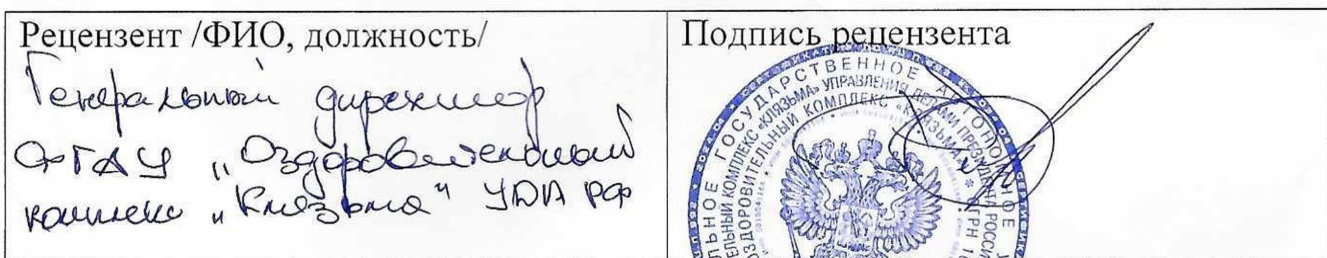 Рецензент /ФИО, должность/
Генеральный директор
ФГАУ „Оздоровительный
комплекс „Клязьма“ УДП РФ
Подпись рецензента
ГОСУДАРСТВЕННОЕ АВТОНОМНОЕ
КОМПЛЕКС «КЛЯЗЬМА» УПРАВЛЕНИЯ ДЕЛАМИ ПРЕЗИДЕНТА РОССИ
ОЗДОРОВИТЕЛЬНЫЙ КОМПЛЕКС «КЛЯЗЬМА»